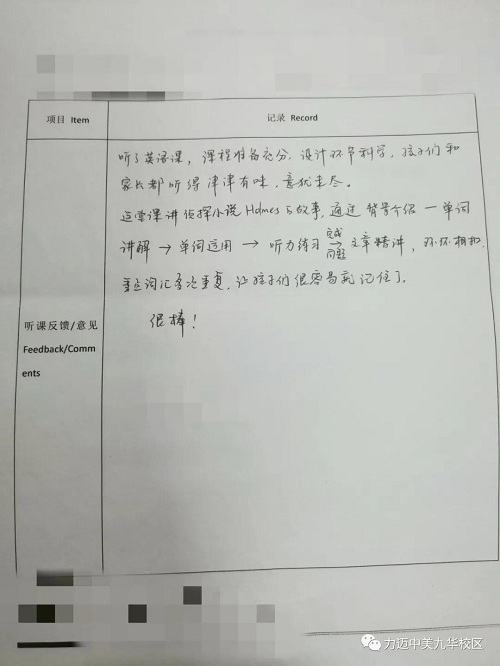 项目 Item
记录 Record
听了英语课，课程准备充分，设计环节科学，孩子们和
家长都听得津津有味，意犹未尽。
这堂课讲侦探小说Holmes的故事，通过背景介绍 — 单词
讲解 → 单词运用 → 听力练习 完成问题 → 文章精讲，环环相扣，
重点词汇多次重复，让孩子们很容易就记住了。
很棒！
听课反馈/意见
Feedback/Comm
ents
力迈中美九华校区